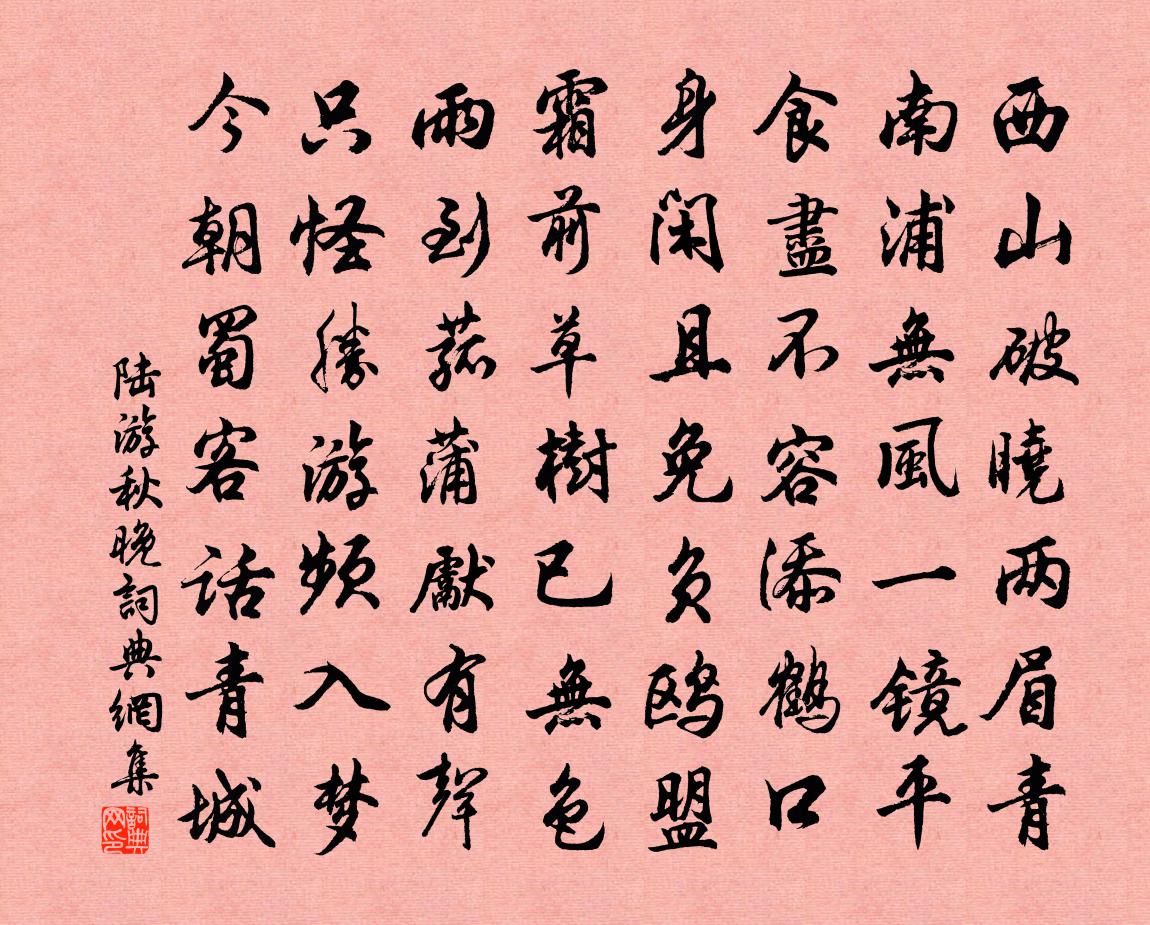 西山破曉两眉青
南浦無風一镜平
食盡不容添鹤口
身闲且免负鸥盟
霜前草樹已無色
雨到菰蒲獻有聲
只怪勝游頻入梦
今朝蜀客话青城
陆游秋晚詞典網集
詞典网印